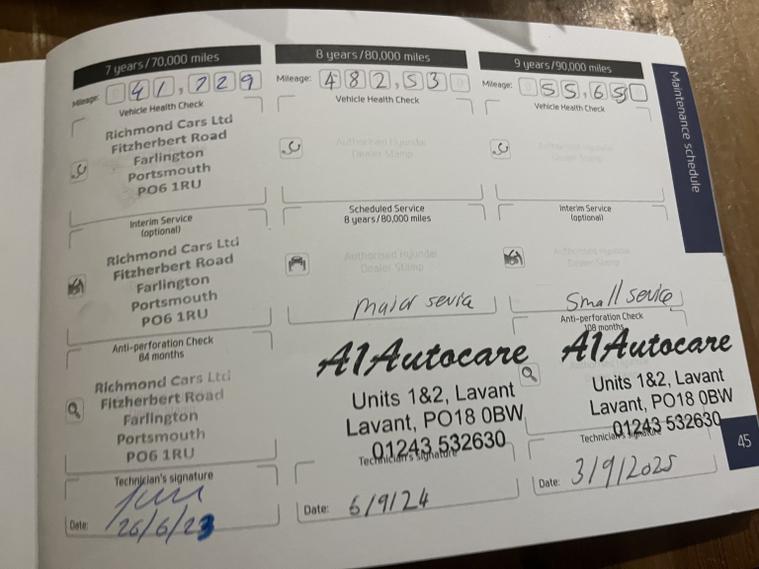 7 years/70,000 miles
Mileage: 41,729
Vehicle Health Check
Richmond Cars Ltd
Fitzherbert Road
Farlington
Portsmouth
PO6 1RU
Interim Service
(optional)
Richmond Cars Ltd
Fitzherbert Road
Farlington
Portsmouth
PO6 1RU
Anti-perforation Check
84 months
Richmond Cars Ltd
Fitzherbert Road
Farlington
Portsmouth
PO6 1RU
Technician's signature
Date: 26/6/23
8 years/80,000 miles
Mileage: 482,530
Vehicle Health Check
Authorised Hyundai
Dealer Stamp
Scheduled Service
8 years/80,000 miles
Authorised Hyundai
Dealer Stamp
Major sevice
A1Autocare
Units 1&2, Lavant
Lavant, PO18 0BW
01243 532630
Technician's signature
Date: 6/9/24
9 years/90,000 miles
Mileage: 55,65
Vehicle Health Check
Authorised Hyundai
Dealer Stamp
Interim Service
(optional)
Authorised Hyundai
Dealer Stamp
Small sevice
Anti-perforation Check
108 months
A1Autocare
Units 1&2, Lavant
Lavant, PO18 0BW
01243 532630
Technician's signature
Date: 3/9/2025
Maintenance schedule
45